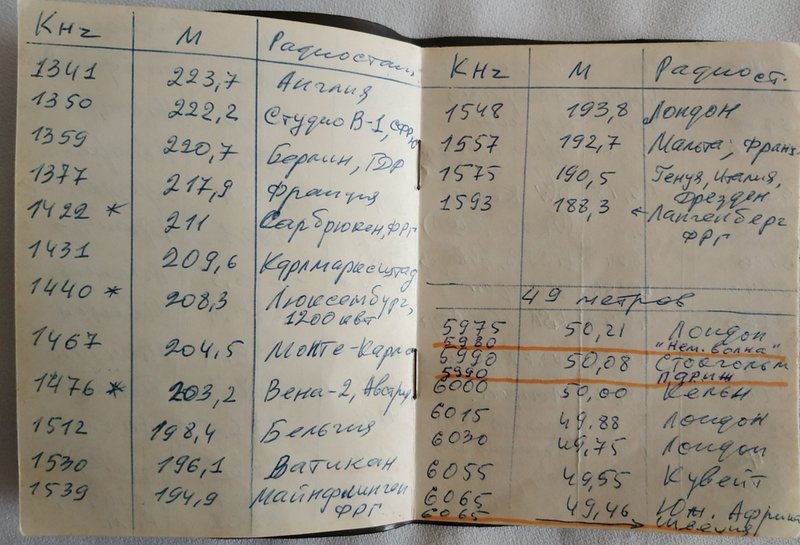 КНz М Радиостан.
1341 223,7 Англия
1350 222,2 Студио В-1, СФРЮ
1359 220,7 Берлин, ГДР
1377 217,9 Франция
1422 * 211 Сарбрюкен, ФРГ
1431 209,6 Карлмарксштад
1440 * 208,3 Люксембург,
1200 квт
1467 204,5 Монте-Карло
1476 * 203,2 Вена-2, Австрия
1512 198,4 Бельгия
1530 196,1 Ватикан
1539 194,9 Майнфлинген
ФРГ
КНz М Радиост.
1548 193,8 Лондон
1557 192,7 Мальта, Франц
1575 190,5 Генуя, Италия,
Дрезден
1593 188,3 Лангенберг
ФРГ
49 метров
5975 50,21 Лондон
5980 "Нем. волна"
5990 50,08 Стокгольм
5990 Париж
6000 50,00 Кельн
6015 49,88 Лондон
6030 49,75 Лондон
6055 49,55 Кувейт
6065 49,46 Юж. Африка
6065 Швеция